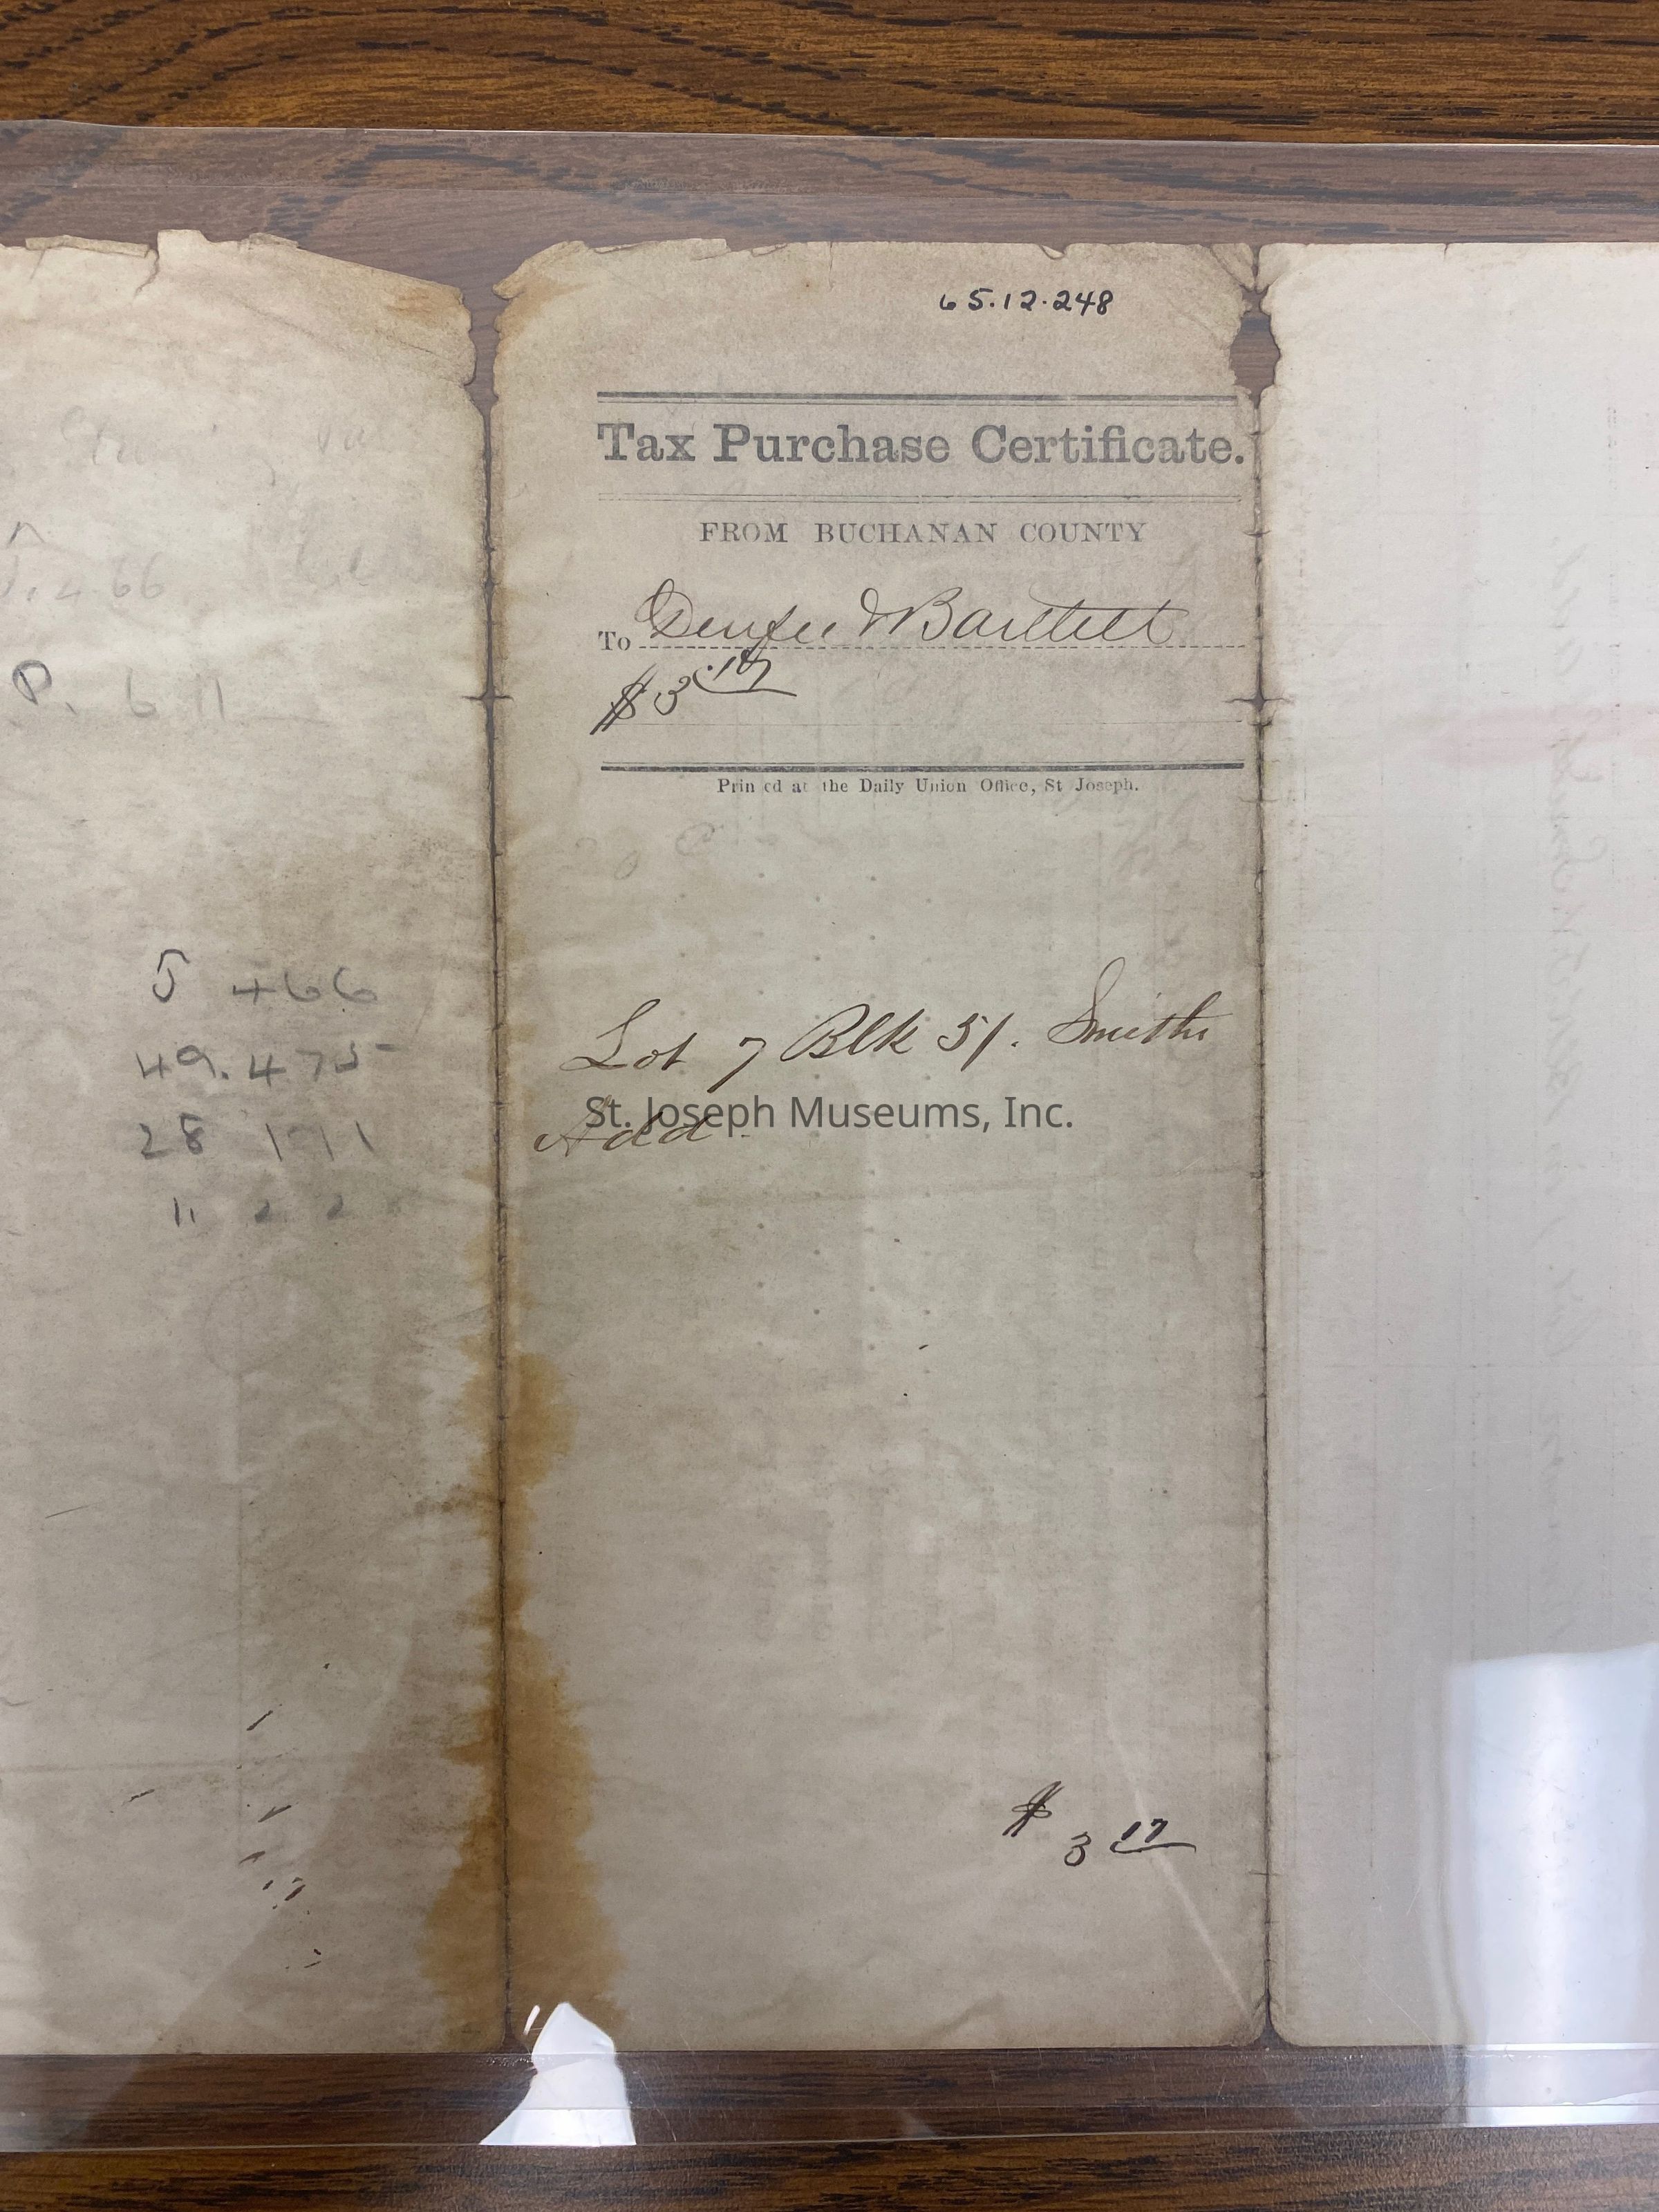 65.12.248
Tax Purchase Certificate.
FROM BUCHANAN COUNTY
To & Bartlett
$3.17
Prin ed at the Daily Union Office, St Joseph.
Lot 7 Blk 51. Smiths
Add.
St. Joseph Museums, Inc.
$ 3 17
P. 611
5 466
49.475
28 111
11 2 2